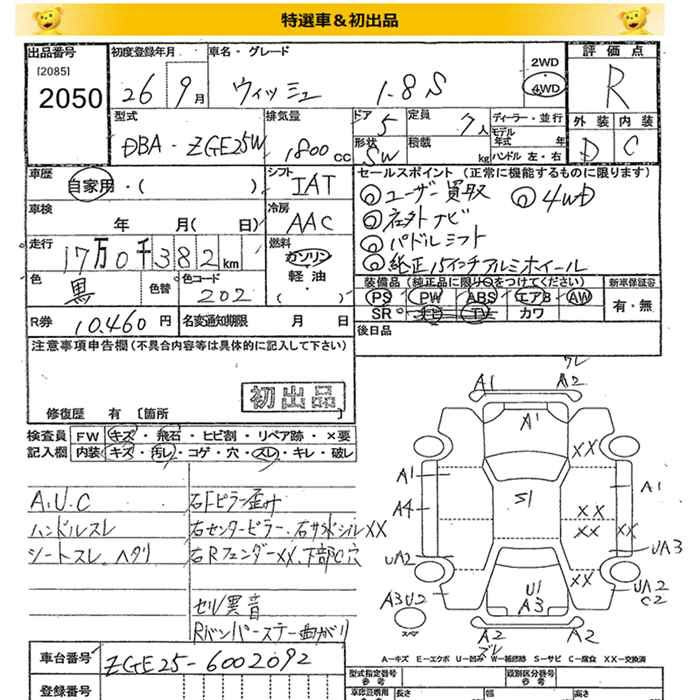 特選車＆初出品
出品番号 [2085] 2050
初度登録年月 26 9月
車名・グレード ウィッシュ 1.8S
2WD 4WD
評価点 R
外装 D 内装 C
型式 DBA-ZGE25W
排気量 1800cc
ドア 5 形状 SW
定員 7人 積載 kg
ディーラー・並行
モデル年式 年
ハンドル 左・右
車歴 自家用・( )
シフト IAT
冷房 AAC
車検 年 月( 日)
走行 17万0千382km
燃料 ガソリン 軽油 ( )
色 黒 色替 色コード 202
R券 10,460円 名変通知期限 月 日
セールスポイント (正常に機能するものに限ります)
◎ユーザー買取 ◎4WD
◎社外ナビ
◎パドルシフト
◎純正15インチアルミホイール
装備品 (純正品に限り○をつけてください)
PS PW ABS エアB AW
SR カワ
新車保証書 有・無
後日品
注意事項申告欄 (不具合内容等は具体的に記入して下さい)
初出品
修復歴 有 [箇所
検査員記入欄
FW キズ・飛石・ヒビ割・リペア跡・×要
内装 キズ・汚レ・コゲ・穴・スレ・キレ・破レ
A.U.C
ハンドルスレ
シートスレ、ヘタリ
右Fピラー歪み
右センターピラー、右サイドシルXX
右RフェンダーXX、下部C穴
セル異音
Rバンパーステー曲がり
ワレ
A1 A2
A1
XX
A1 A1
A4 S1 XX
XX XX
UA2 UA3
XX
U1 UA2
A3U2 A3 C2
スペア
A2 A2
ズレ
A-キズ E-エクボ U-凹み W-補修跡 S-サビ C-腐食 XX-交換済
車台番号 ZGE25-6002092
登録番号
型式指定番号 参考
類別区分番号 参考
長さ 幅 高さ